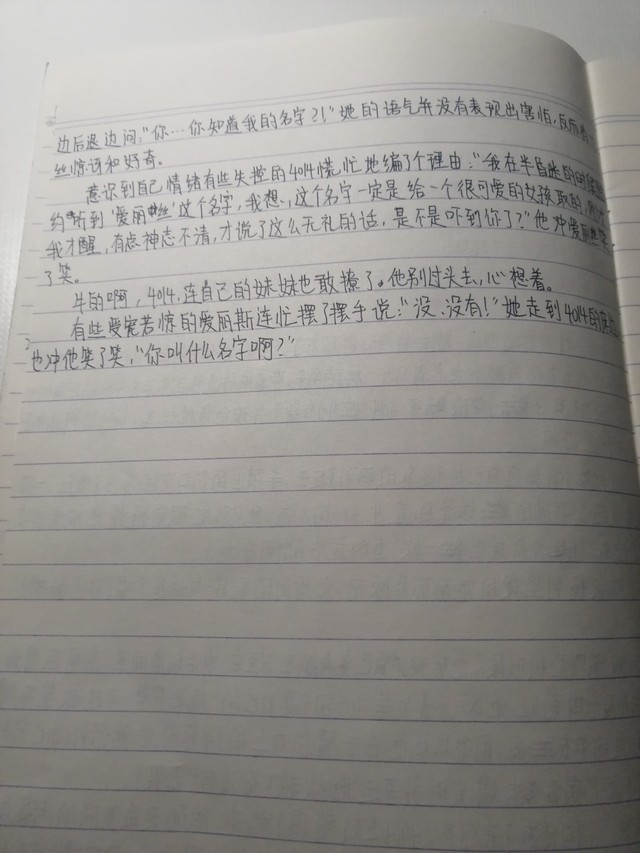 边后退边问："你…你知道我的名字？！"她的语气并没有表现出害怕，反而
丝惊讶和好奇。
意识到自己情绪有些失控的4014慌忙地编了个理由："我在半昏迷的时候
约听到'爱丽丝'这个名字，我想，这个名字一定是给一个很可爱的女孩取的，
我才醒，有点神志不清，才说了这么无礼的话，是不是吓到你了？"他冲爱丽丝笑
了笑。
牛的啊，4014，连自己的妹妹也敢撩了。他别过头去，心想着。
有些受宠若惊的爱丽斯连忙摆了摆手说："没、没有！"她走到4014的床
也冲他笑了笑，"你叫什么名字啊？"